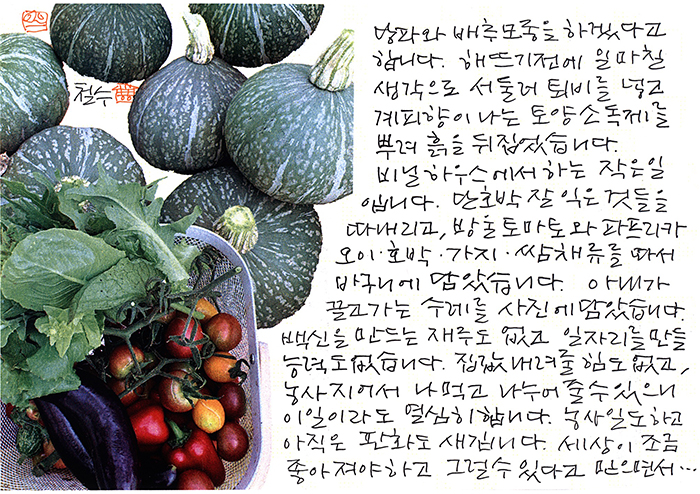 철수
양파와 배추모종을 하겠다고
합니다. 해뜨기전에 일 마칠
생각으로 서둘러 퇴비를 넣고
계피향이 나는 토양소독제를
뿌려 흙을 뒤집었습니다.
비닐하우스에서 하는 작은일
입니다. 단호박 잘 익은 것들을
따내리고, 방울토마토와 파프리카
오이·호박·가지·쌈채류를 따서
바구니에 담았습니다. 아내가
끌고가는 수레를 사진에 담았습니다.
백신을 만드는 재주도 없고 일자리를 만들
능력도 없습니다. 집값 내려를 힘도 없고,
농사지어서 나 먹고 나누어 줄 수 있으니
이 일이라도 열심히 합니다. 농사일도 하고
아직은 판화도 새깁니다. 세상이 조금
좋아져야 하고 그럴 수 있다고 믿으면서…